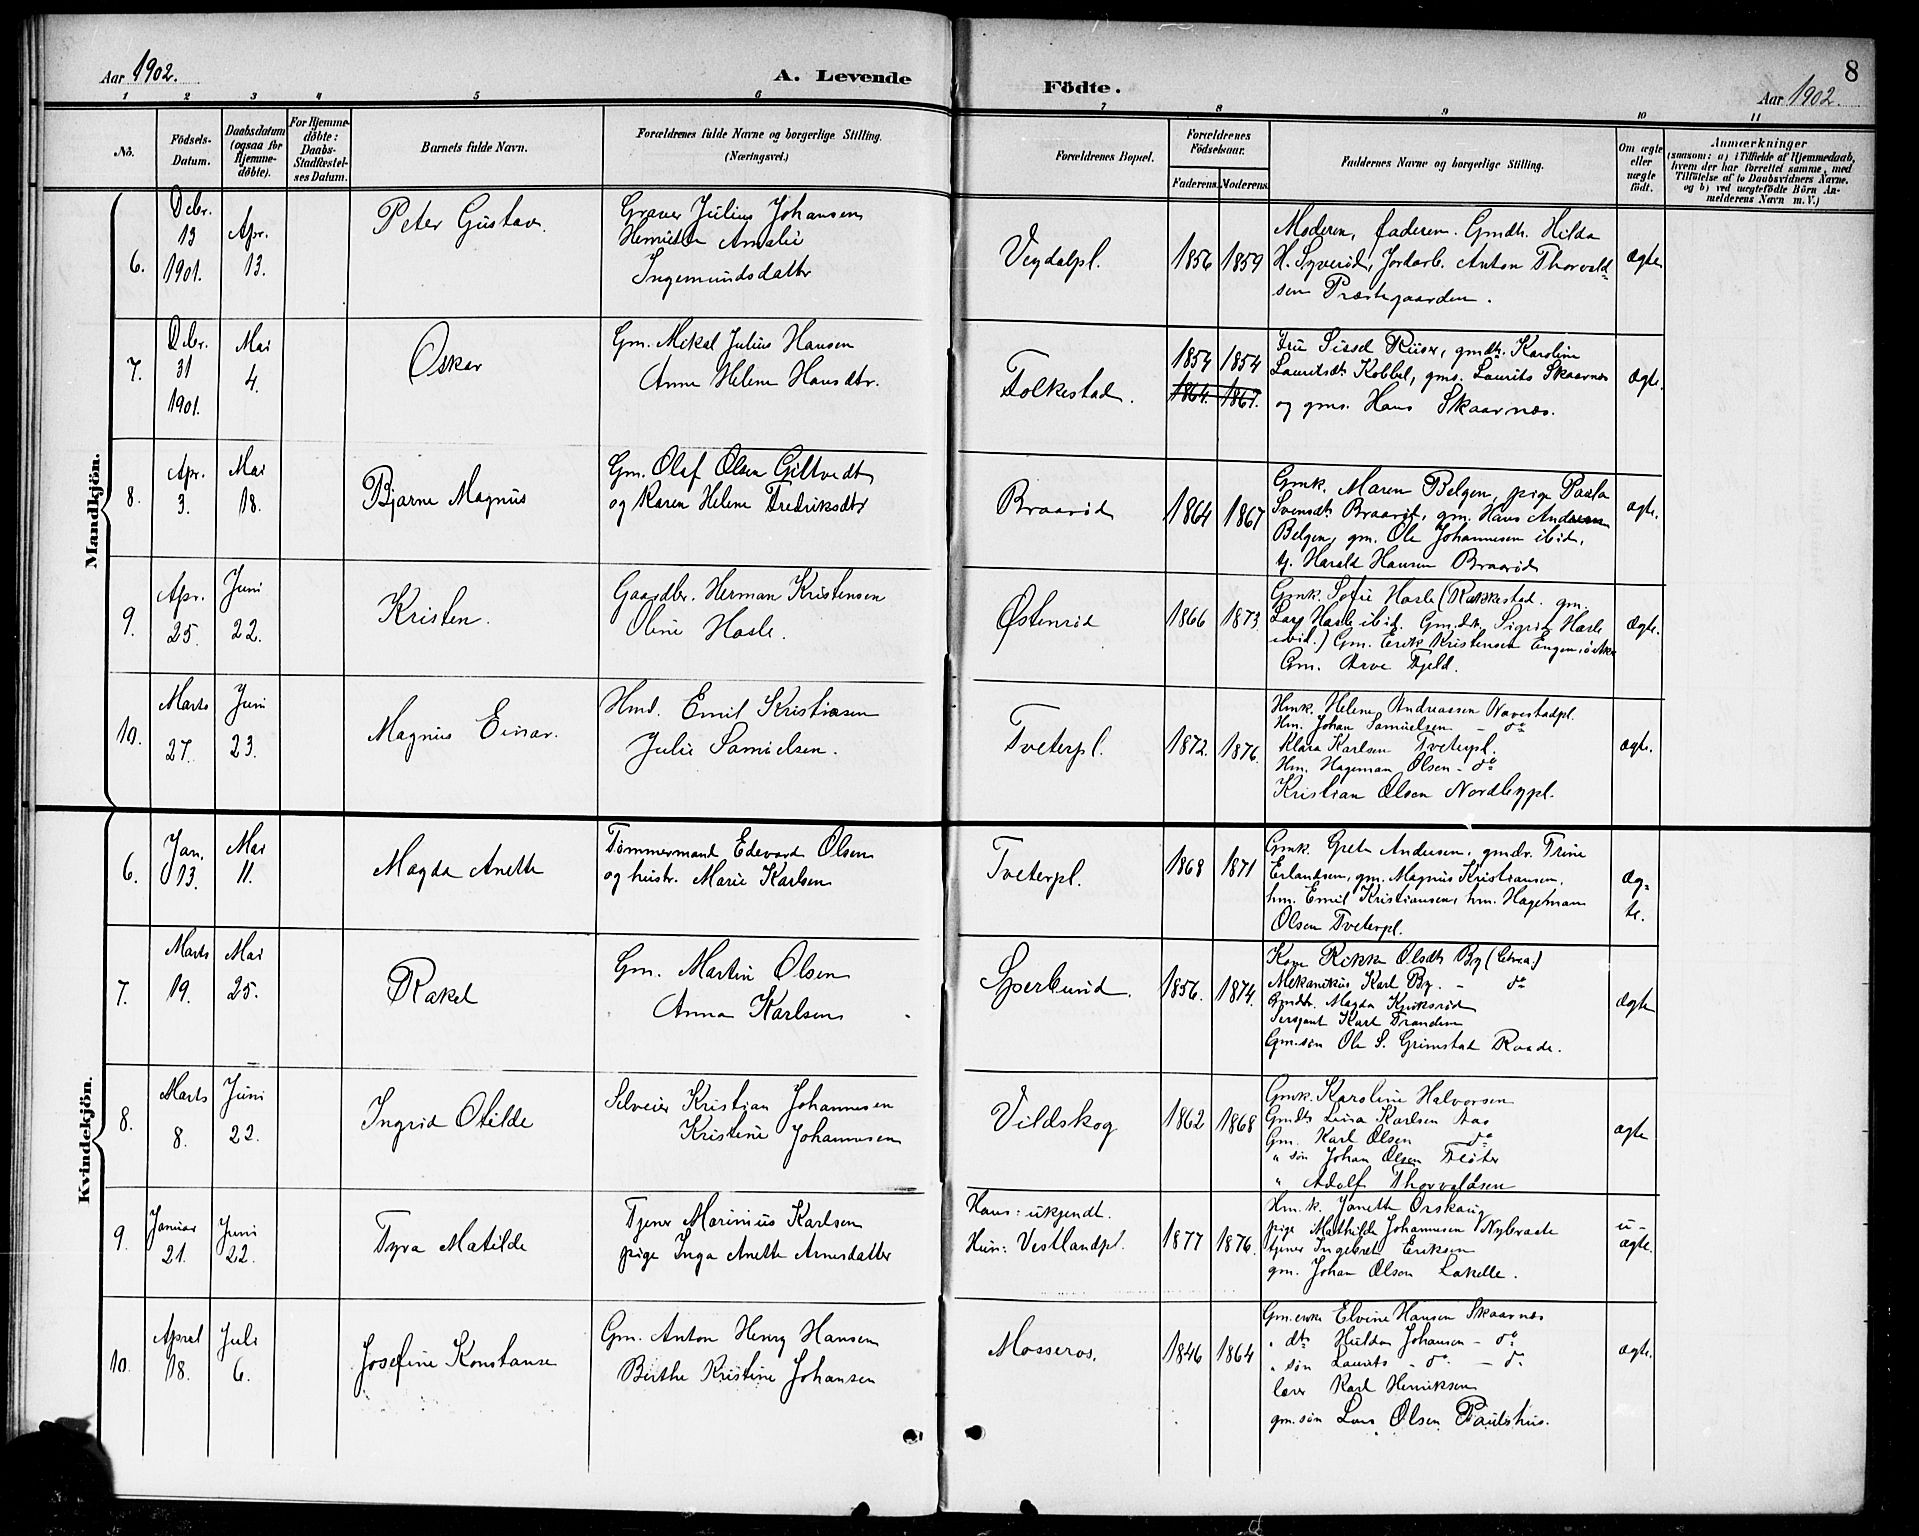 Aar 1902.
A. Levende
Födte.
8
Aar 1902.
1 2 3 4 5 6 7 8 9 10 11
Nô.
Födsels-
Datum.
Daabsdatum
(ogsaa for
Hjemme-
döbte).
For Hjemme-
döbte:
Daabs-
Stadfæstel-
ses Datum.
Barnets fulde Navn.
Forældrenes fulde Navne og borgerlige Stilling.
(Næringsvei.)
Forældrenes Bopæl.
Forældrenes
Födselsaar.
Faderens. Moderens.
Faddernes Navne og borgerlige Stilling.
Om ægte
eller
uægte
födt.
Anmærkninger
(saasom: a) i Tilfælde af Hjemmedaab,
hvem der har forrettet samme, med
Tilföielse af to Daabsvidners Navne.
og b) ved uægtefödte Börn An-
melderens Navn m. V.)
Mandkjön.
6.
Debr.
13
1901.
Apr.
13.
Peter Gustav.
Graver Julius Johansen
Henriette Amalie
Ingemundsdatter
Vegdalpl.
1856 1859
Moderen, faderen. Gmdtr. Hilda
H. Syverød, Jordarb. Anton Thorvald-
sen Præstegaarden.
Ægte
7.
Debr.
31
1901.
Mai
4.
Oskar
Gm. Mekal Julius Hansen
Anne Helene Hansdtr.
Folkestad.
1854 1854
1864. 1867.
Fru Sissel Riiser, gmdtr. Karoline
Lauritsdt. Kobbel, gms. Laurits Skaarnæs
og gms. Hans Skaarnæs.
Ægte.
8.
Apr.
3.
Mai
18.
Bjarne Magnus
Gm. Olaf Olsen Giltvedt
og Karen Helene Fredriksdtr
Braarød
1864 1867
Gmk. Maren Belgen, pige Paula
Svensdt. Braarød, gm. Hans Andersen
Belgen, gm. Ole Johannesen ibid,
tj. Harald Hansen Braarød
ægte.
9.
Apr.
25.
Juni
22.
Kristen.
Gaardbr. Herman Kristensen
Oline Hasle.
Østenrød
1866 1873.
Gmk. Sofie Hasle (Rakkestad. gm.
Lars Hasle ibid. Gm.dtr. Sigrid Hasle
ibid.) Gm. Erik Kristensen Engen
Gm. Arve Fjeld.
Ægte.
10.
Marts
27.
Juni
23.
Magnus Einar.
Hmd. Emil Kristiasen
Julie Samuelsen.
Tveterpl.
1872. 1876.
Hmk. Helene Andreassen Navestadpl.
Hm. Johan Samuelsen - do
Klara Karlsen Tveterpl.
Hm. Hageman Olsen - do
Kristian Olsen Nordbypl.
ægte.
Kvindekjön.
6.
Jan.
13.
Mai
11.
Magda Anette
Tømmermand Edevard Olsen
og hustr. Marie Karlsen
Tveterpl.
1868 1871
Gmk. Grete Andersen, gmdr. Trine
Erlandsen, gm. Magnus Kristiansen,
hm. Emil Kristiansen, hm. Hageman
Olsen Tveterpl.
Æg-
te.
7.
Marts
19.
Mai
25.
Rakel
Gm. Martin Olsen
Anna Karlsen
Sperlund.
1856. 1874.
Kone Rikka Olsdt. By
Mekanikus Karl By. - do
Gmdtr. Magda
Sersjant Karl Tranden
Gm.søn Ole S. Grimstad Raade.
Ægte
8.
Marts
8.
Juni
22.
Ingrid Otilde
Selveier Kristian Johannesen
Kristine Johannesen
Vildskog
1862 1868
Gmk. Karoline Halvorsen
Gmdt. Lina Karlsen Aas
Gm. Karl Olsen do
" søn Johan Olsen Fløter
" Adolf Thorvaldsen
ægte
9.
Januar
21.
Juni
22.
Tyra Matilde
Tjener Marinius Karlsen
pige Inga Anette Arnesdatter
Hans: ukjendt.
Hun: Vestlandpl.
1877 1876.
Hm.k. Janette Orskaug
pige Mathilde Johannesen Nybraate
tjener Ingebret Eriksen
gm. Johan Olsen Lakelle.
u-
ægte.
10.
April
18.
Juli
6.
Josefine Konstanse
Gm. Anton Henry Hansen
Birthe Kristine Johansen
Mosseros.
1846 1864
Gm.enke Elvine Hansen Skaarnæs
" dtr Hulda Johansen - do
" søn Laurits - do - do
lærer Karl Henriksen
gm.søn Lars Olsen Paulshus.
ægte.